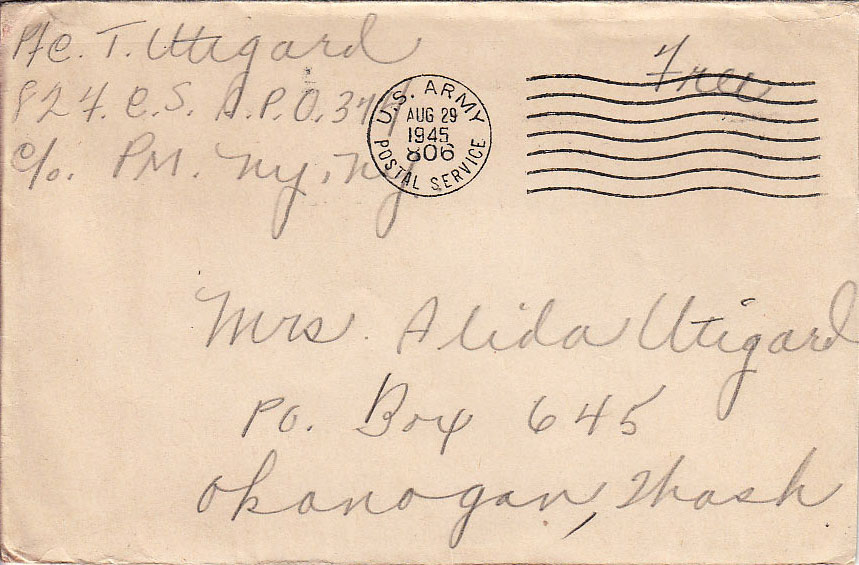 Pfc. T. Utigard
824. C. S. A.P.O. 374
c/o. PM. Ny, Ny
Free
U.S. ARMY
AUG 29
1945
806
POSTAL SERVICE
Mrs. Alida Utigard
PO. Box 645
Okanogan, Wash